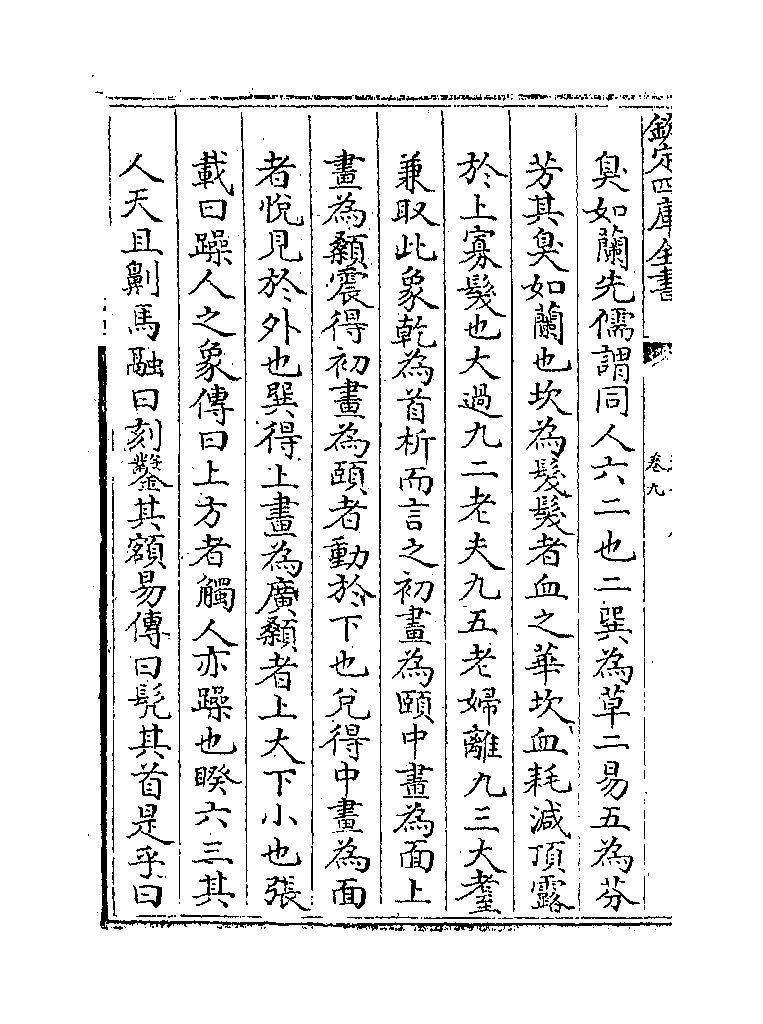 欽定四庫全書
卷九
臭如蘭先儒謂同人六二也二巽為草二易五為芬
芳其臭如蘭也坎為髮髮者血之華坎血耗減頂露
於上寡髮也大過九二老夫九五老婦離九三大耋
兼取此象乾為首析而言之初畫為頤中畫為面上
畫為顙震得初畫為頤者動於下也兌得中畫為面
者悅見於外也巽得上畫為廣顙者上大下小也張
載曰躁人之象傳曰上方者觸人亦躁也睽六三其
人天且劓馬融曰刻鑿其額易傳曰髡其首是乎曰